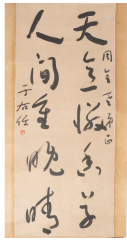 天意憐幽草
人間重晚晴
于右任